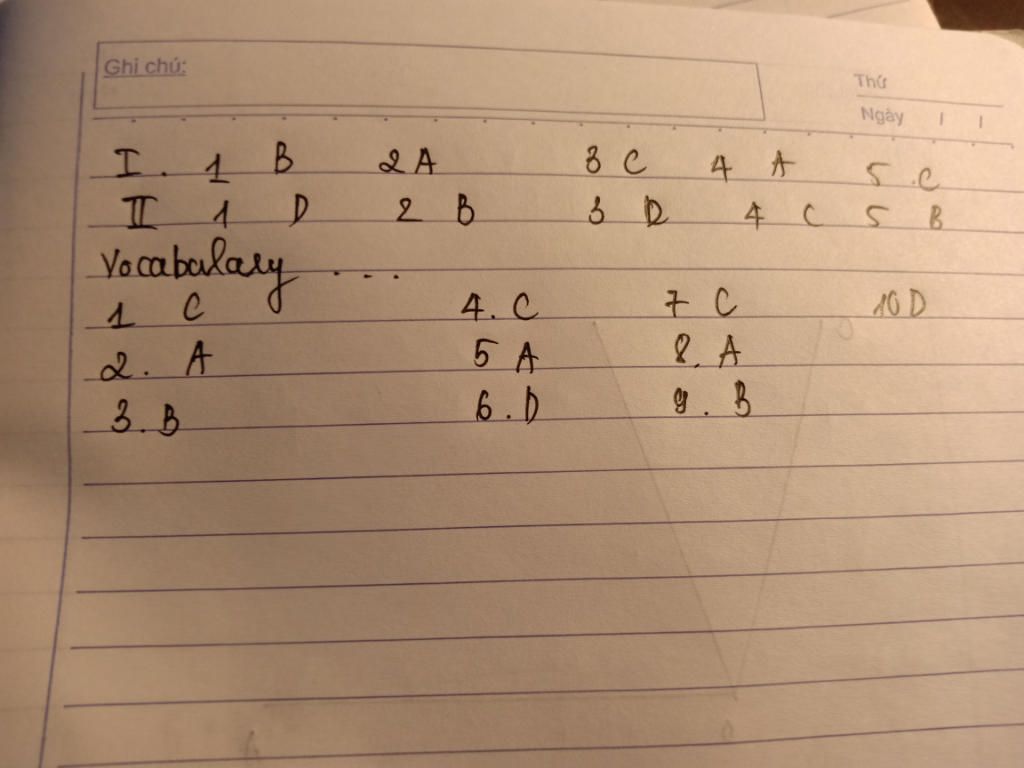 Ghi chú:
Thứ
Ngày / /
I. 1 B 2 A 3 C 4 A 5 .C
II 1 D 2 B 3 D 4 C 5 B
Vocabulary ....
1 C 4. C 7 C 10 D
2. A 5 A 8. A
3. B 6. D 9. B